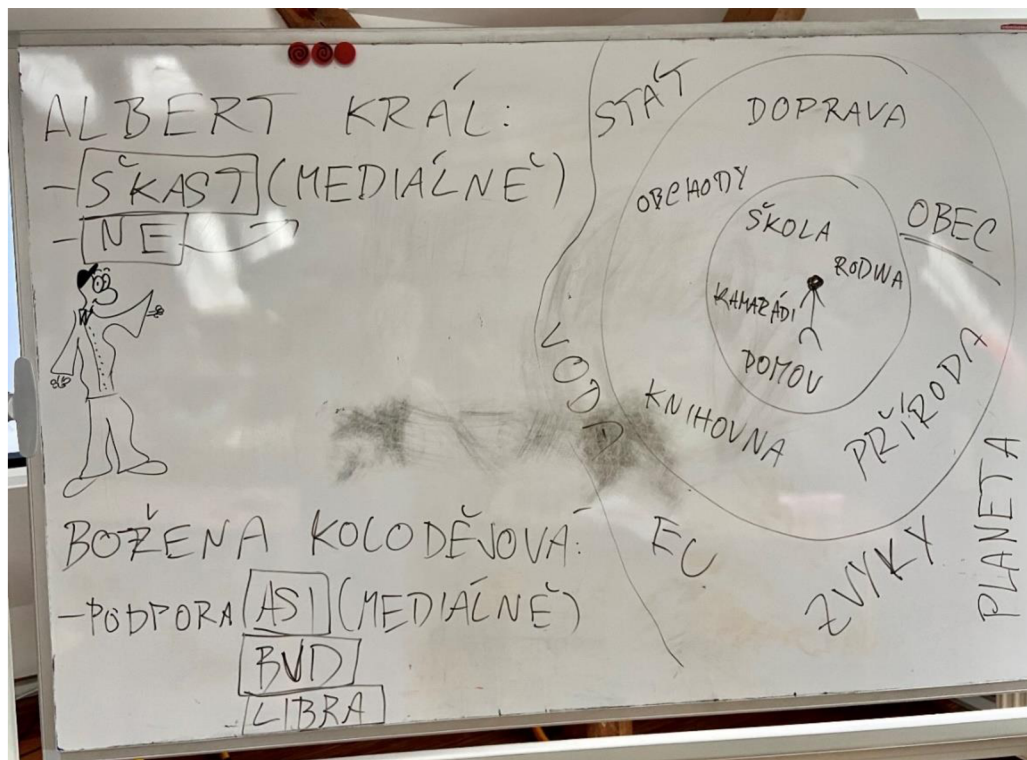 ALBERT KRÁL:
- ŠKAST (MEDIÁLNĚ)
- NE
BOŽENA KOLODĚJOVÁ:
- PODPORA ASI (MEDIÁLNĚ)
BVD
LIBRA
STÁT
DOPRAVA
OBCHODY
OBEC
ŠKOLA
RODINA
KAMARÁDI
DOMOV
KNIHOVNA
PŘÍRODA
ZVYKY
PLANETA